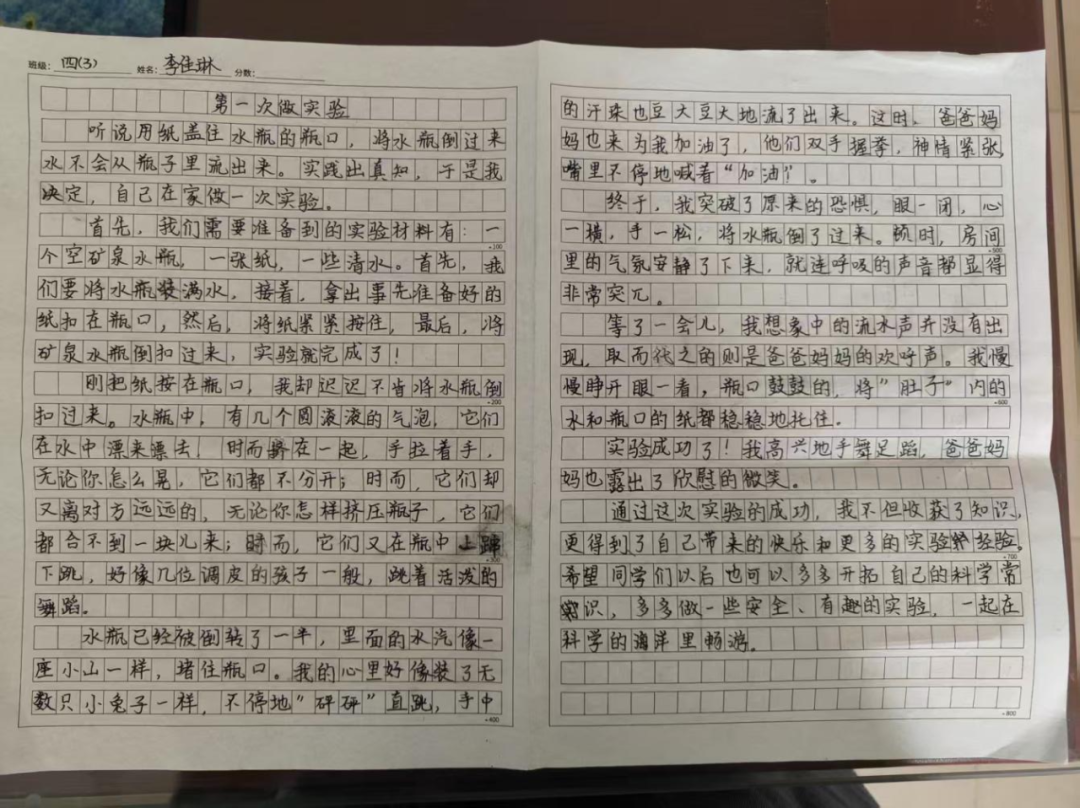 班级：四(3) 姓名：李佳琳 分数：
第一次做实验
听说用纸盖住水瓶的瓶口，将水瓶倒过来
水不会从瓶子里流出来。实践出真知，于是我
决定，自己在家做一次实验。
首先，我们需要准备到的实验材料有：一
+100
个空矿泉水瓶，一张纸，一些清水。首先，我
们要将水瓶装满水，接着，拿出事先准备好的
纸扣在瓶口，然后，将纸紧紧按住，最后，将
矿泉水瓶倒扣过来，实验就完成了！
刚把纸按在瓶口，我却迟迟不肯将水瓶倒
+200
扣过来。水瓶中，有几个圆滚滚的气泡，它们
在水中漂来漂去，时而挤在一起，手拉着手，
无论你怎么晃，它们都不分开；时而，它们却
又离对方远远的，无论你怎样挤压瓶子，它们
都合不到一块儿来；时而，它们又在瓶中上蹿
+300
下跳，好像几位调皮的孩子一般，跳着活泼的
舞蹈。
水瓶已经被倒转了一半，里面的水汽像一
座小山一样，堵住瓶口。我的心里好像装了无
数只小兔子一样，不停地"砰砰"直跳，手中
+400
的汗珠也豆大豆大地流了出来。这时，爸爸妈
妈也来为我加油了，他们双手握拳，神情紧张，
嘴里不停地喊着“加油”。
终于，我突破了原来的恐惧，眼一闭，心
一横，手一松，将水瓶倒了过来。顿时，房间
+500
里的气氛安静了下来，就连呼吸的声音都显得
非常突兀。
等了一会儿，我想象中的流水声并没有出
现，取而代之的则是爸爸妈妈的欢呼声。我慢
慢睁开眼一看，瓶口鼓鼓的，将"肚子"内的
+600
水和瓶口的纸都稳稳地托住。
实验成功了！我高兴地手舞足蹈，爸爸妈
妈也露出了欣慰的微笑。
通过这次实验的成功，我不但收获了知识，
更得到了自己带来的快乐和更多的实验经验。
+700
希望同学们以后也可以多多开拓自己的科学常
识，多多做一些安全、有趣的实验，一起在
科学的海洋里畅游。
+800